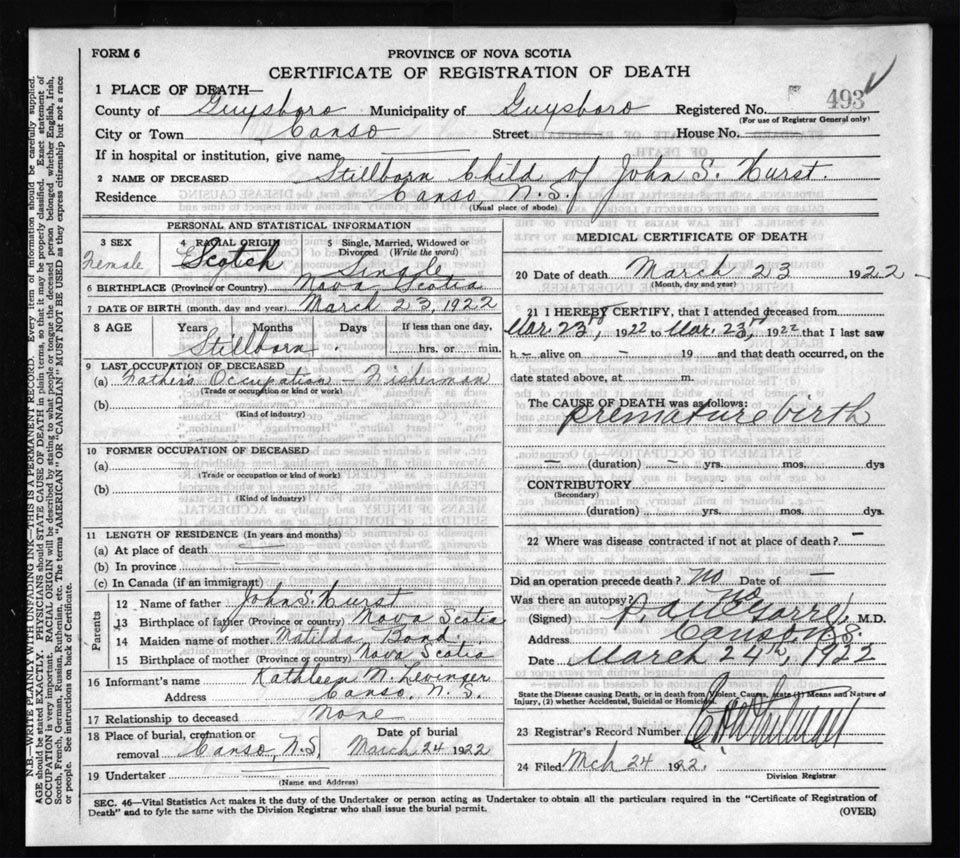 FORM 6
PROVINCE OF NOVA SCOTIA
CERTIFICATE OF REGISTRATION OF DEATH
493
1 PLACE OF DEATH—
County of Guysboro Municipality of Guysboro Registered No.
(For use of Registrar General only)
City or Town Canso Street House No.
If in hospital or institution, give name
2 NAME OF DECEASED Stillborn Child of John S. Hurst.
Residence Canso, N.S.
(Usual place of abode)
PERSONAL AND STATISTICAL INFORMATION
3 SEX 4 RACIAL ORIGIN 5 Single, Married, Widowed or Divorced (Write the word)
Female Scotch Single
6 BIRTHPLACE (Province or Country) Nova Scotia
7 DATE OF BIRTH (month, day and year) March 23, 1922
8 AGE Years Months Days If less than one day,
Stillborn hrs. or min.
9 LAST OCCUPATION OF DECEASED
(a) Fathers Occupation — Fisherman
(Trade or occupation or kind or work)
(b)
(Kind of industry)
10 FORMER OCCUPATION OF DECEASED
(a)
(Trade or occupation or kind of work)
(b)
(Kind of industry)
11 LENGTH OF RESIDENCE (In years and months)
(a) At place of death
(b) In province
(c) In Canada (if an immigrant)
Parents
12 Name of father John S. Hurst
13 Birthplace of father (Province or country) Nova Scotia
14 Maiden name of mother Matilda Bond
15 Birthplace of mother (Province or country) Nova Scotia
16 Informant's name Kathleen N. Levinger
Address Canso, N. S.
17 Relationship to deceased None
18 Place of burial, cremation or removal Canso, N.S. Date of burial March 24 1922
19 Undertaker
(Name and Address)
MEDICAL CERTIFICATE OF DEATH
20 Date of death March 23 1922
(Month, day and year)
21 I HEREBY CERTIFY, that I attended deceased from
Mar. 23rd, 1922 to Mar. 23rd, 1922 that I last saw
h — alive on — 19 and that death occurred, on the
date stated above, at m.
The CAUSE OF DEATH was as follows:
premature birth
— (duration) — yrs. mos. dys
CONTRIBUTORY
(Secondary)
(duration) yrs. mos. dys
22 Where was disease contracted if not at place of death? —
Did an operation precede death? No Date of —
Was there an autopsy? No
(Signed) M.D.
Address Canso N.S.
Date March 24th, 1922
State the Disease causing Death, or in death from Violent, Causes, state (1) Means and Nature of
Injury, (2) whether Accidental, Suicidal or Homicidal.
23 Registrar's Record Number
24 Filed Mch 24 1922.
Division Registrar
SEC. 46—Vital Statistics Act makes it the duty of the Undertaker or person acting as Undertaker to obtain all the particulars required in the "Certificate of Registration of
Death" and to fyle the same with the Division Registrar who shall issue the burial permit.
(OVER)
N.B.—WRITE PLAINLY WITH UNFADING INK—THIS IS A PERMANENT RECORD. Every item of information should be carefully supplied.
AGE should be stated EXACTLY. PHYSICIANS should STATE CAUSE OF DEATH in plain terms, so that it may be properly classified. Exact statement of
OCCUPATION is very important. RACIAL ORIGIN will be described by stating to what people or tongue the deceased person belonged whether English, Irish,
Scotch, French, German, Russian, Ruthenian, etc. The terms "AMERICAN" OR "CANADIAN" MUST NOT BE USED as they express citizenship but not a race
or people. See instructions on back of Certificate.